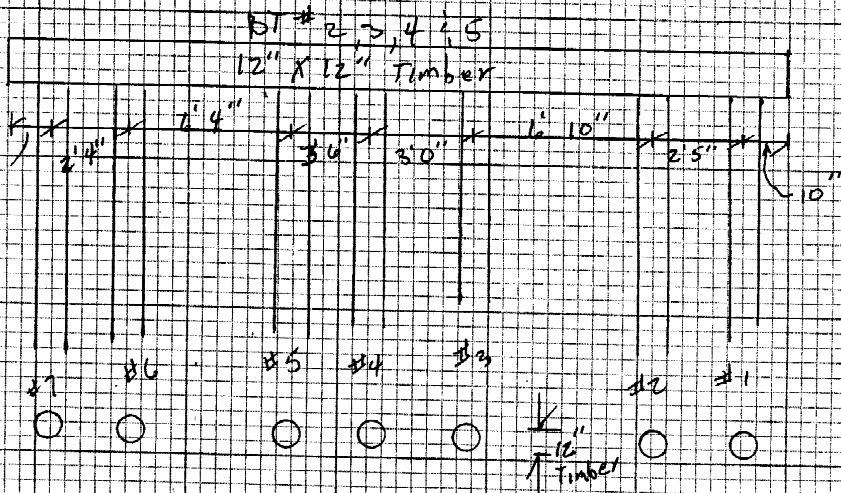 BT # 2, 3, 4 & 5
12" X 12" Timber
2'4"
6'4"
3'6"
3'0"
6' 10"
2'5"
10"
#7
#6
#5
#4
#3
#2
#1
12"
Timber